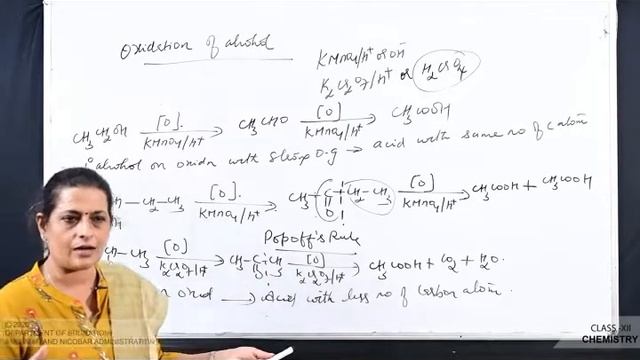 Oxidation of alcohol
KMnO4/H+ or OH
K2Cr2O7/H+ or H2CrO4
CH3CH2OH [O] KMnO4/H+ → CH3CHO [O] KMnO4/H+ → CH3COOH
1° alcohol on oxidn with strong O.g → acid with same no of C atom
CH — CH2 — CH3 [O] KMnO4/H+ → CH3 — C — CH2 — CH3 [O] KMnO4/H+ → CH3COOH + CH3COOH
O
Popoff's Rule
CH — CH3 [O] K2Cr2O7/H+ → CH3 — C — CH3 [O] K2Cr2O7/H+ → CH3COOH + CO2 + H2O.
O
on oxid → Acid with less no of carbon atom.
© 2020
DEPARTMENT OF EDUCATION
ANDAMAN AND NICOBAR ADMINISTRATION
CLASS -XII
CHEMISTRY